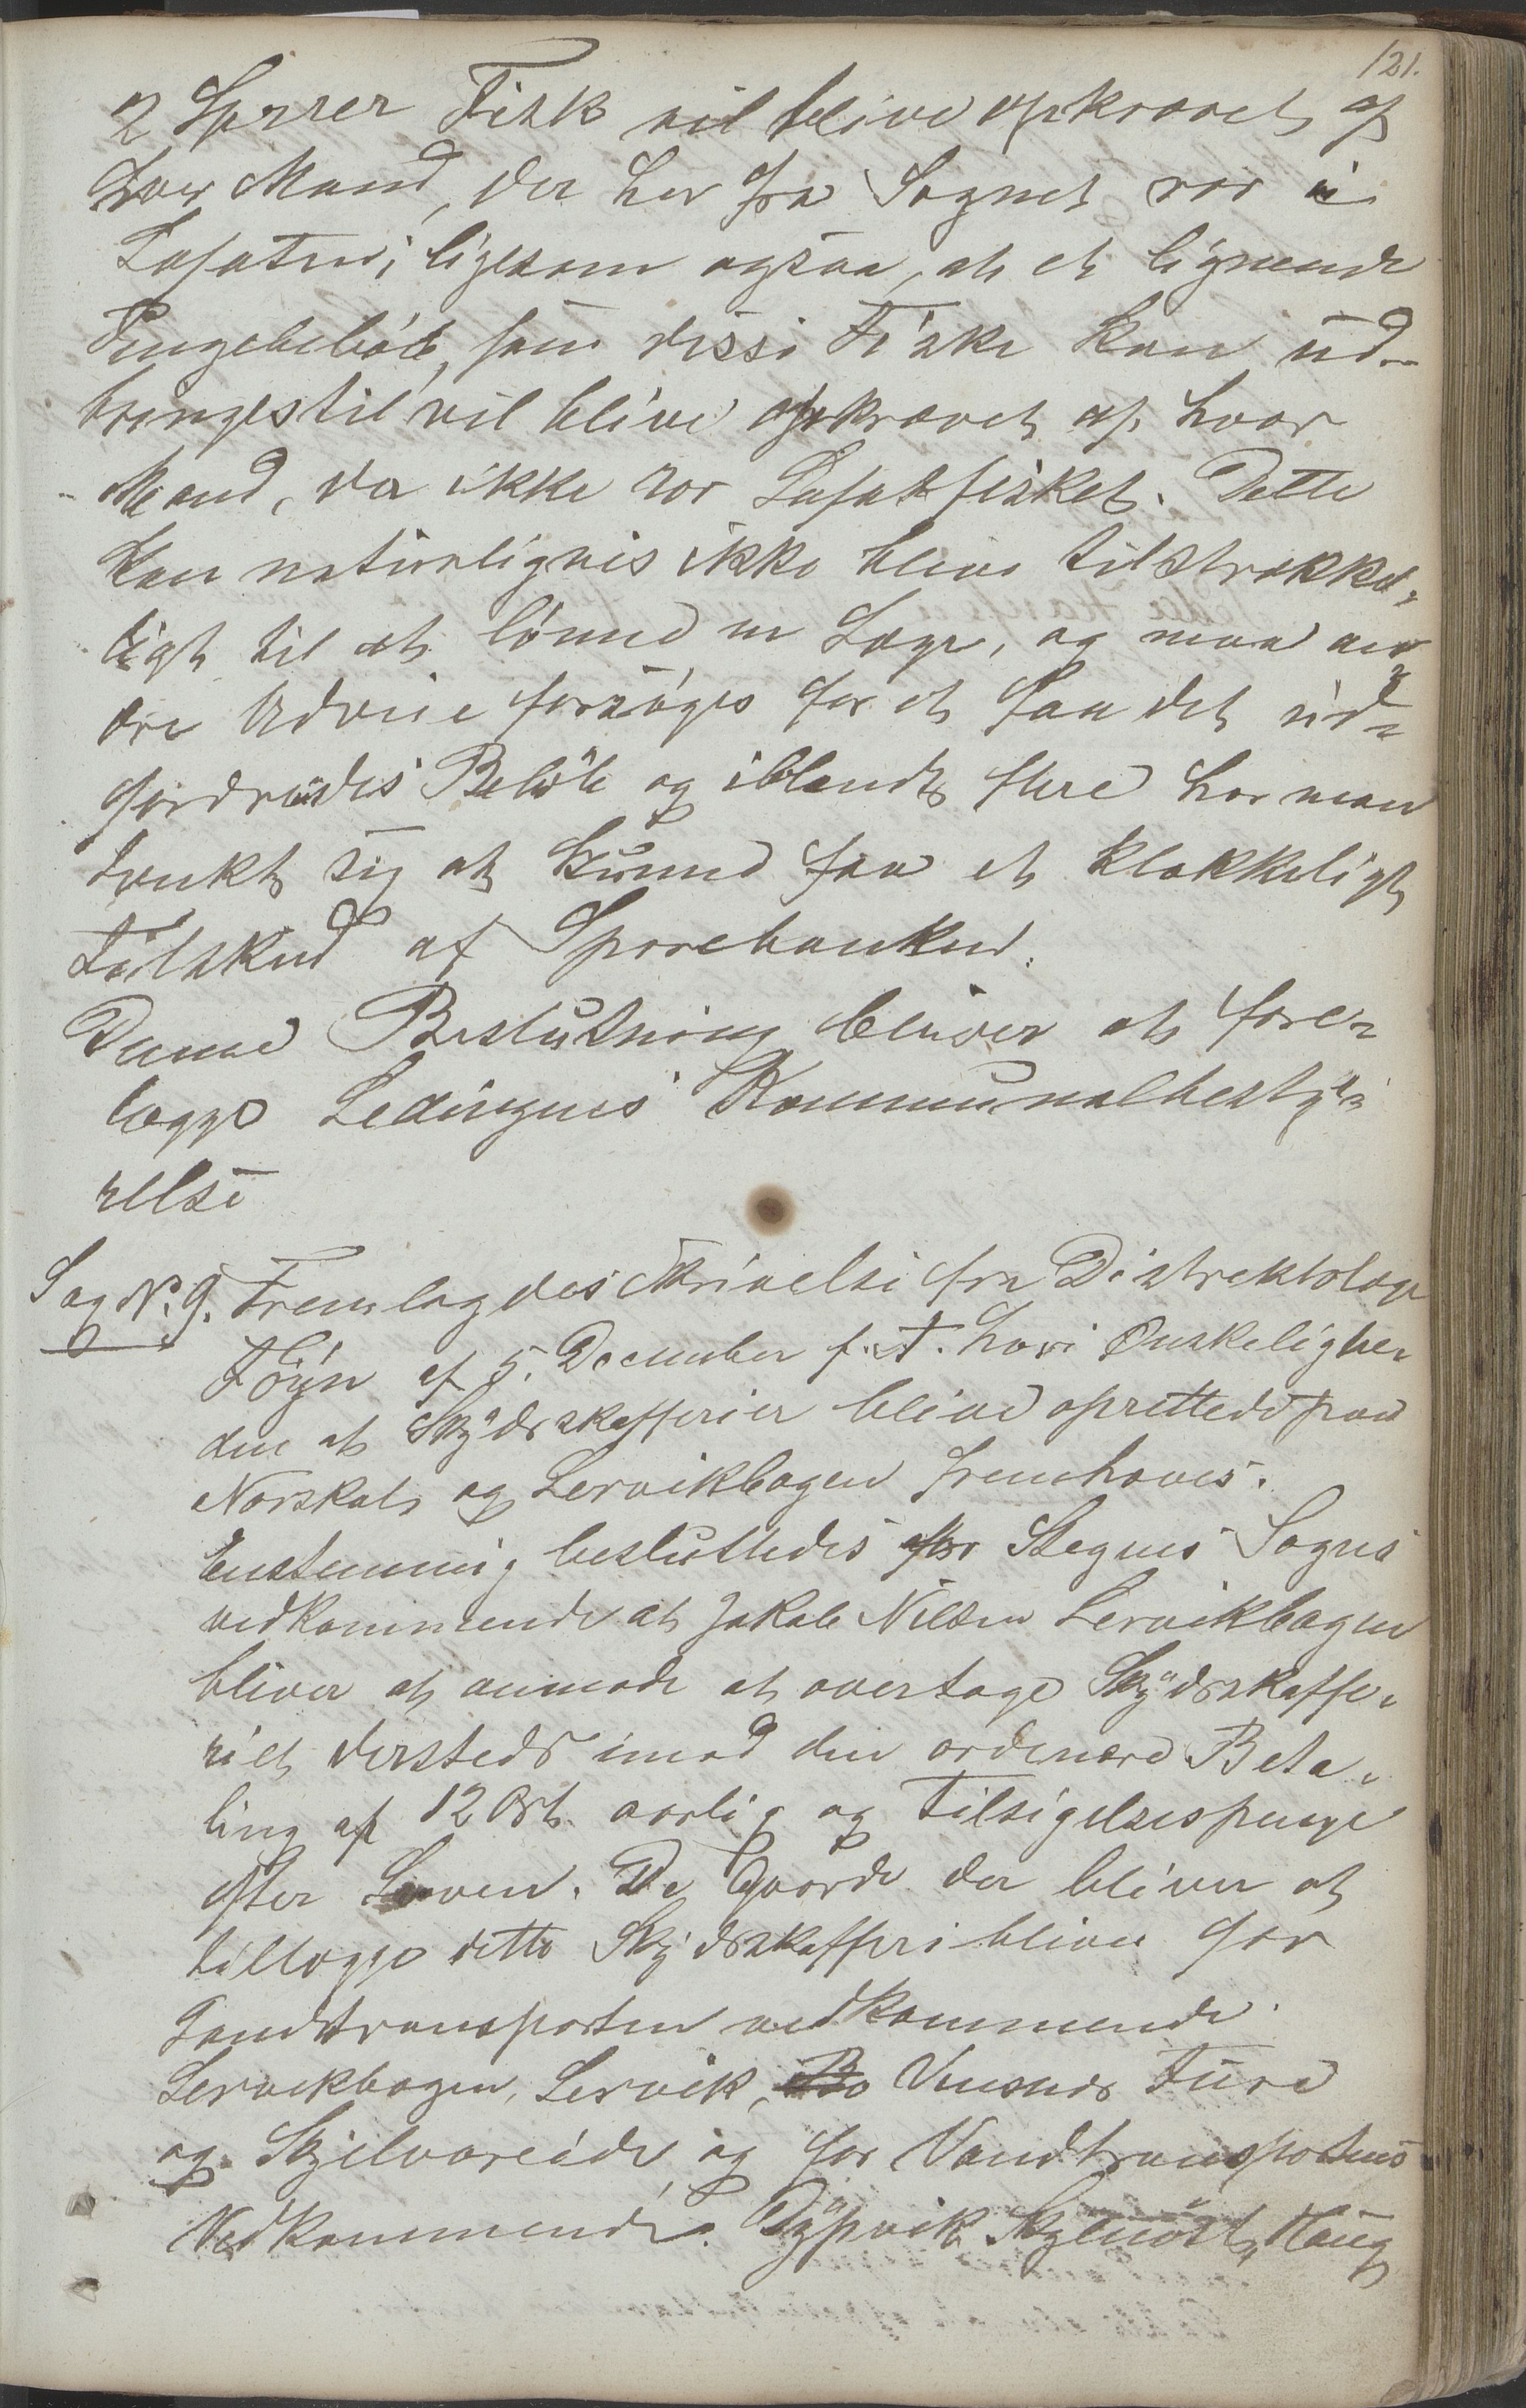 121.
2 Sperrer Fisk vil blive opkrævet af
hver Mand, der her fra Sognet ror i
Lofoten; ligesom ogsaa, at et lignende
Pengebeløb, som disse Fiske kan ud-
bringes til vil blive opkrævet af hver
Mand, der ikke ror Lofotfisket. Dette
kan naturligvis ikke blive tilstrække-
ligt til at lönne en Læge, og maa an-
dre Udveie forsøges for at faa det ud-
fordrendes Beløb og iblandt flere har man
tænkt sig at kunne faa et klækkeligt
Tilskud af Sparebanken.
Denne Beslutning bliver at fore-
lægge Ledingens Kommunalbesty-
relse
Sag No. 9. Fremlagdes Skrivelse fra Distriktslæge
Föyn af 5. December f. A. hvori Ønskelighe-
den at Skydsskafferier blive oprettede paa
Norskot og Lervikbogen fremhæves.
Enstemmig besluttedes for Stegens Sogns
vedkommende at Jakob Nilsen Lervikbogen
bliver at anmode at overtage Skydsskaffe-
riet dersteds imod den ordenære Beta-
ling af 12 Ort. aarlig og Tilsigelsespenge
efter Loven. De Gaarde der bliver at
tillægge dette Skydsskafferi bliver for
Landtransporten vedkommende
Lervikbogen, Lervik, Vinsnes Fure
og Skjelvareide og for Vandtransportens
Vedkommende. Dypvik Haug